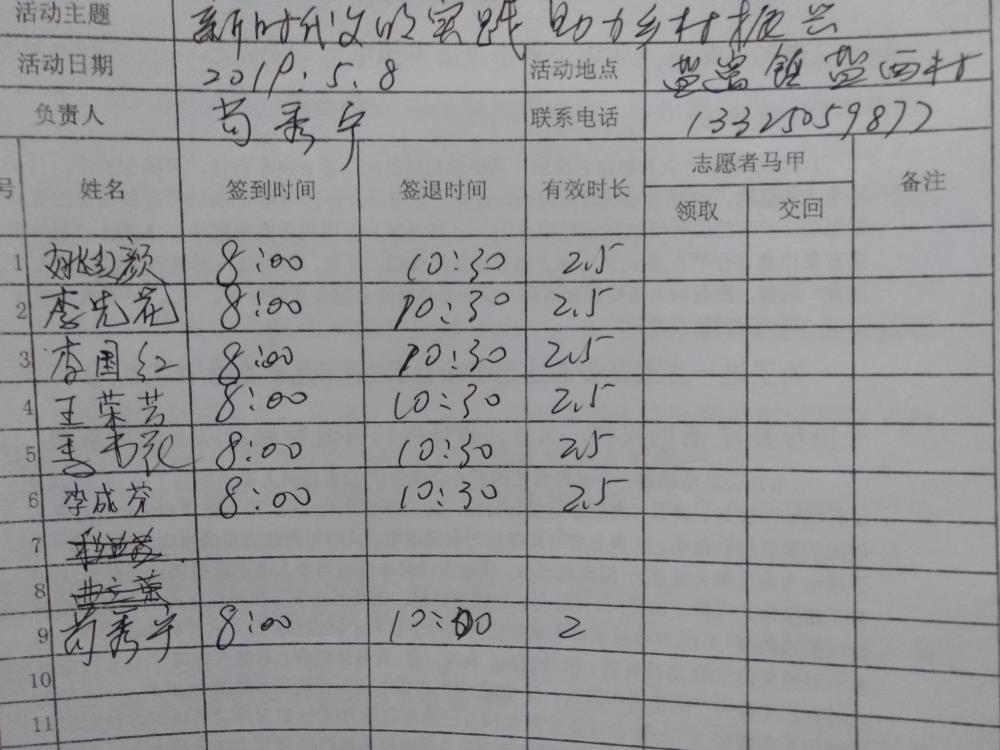 活动主题 新时代文明实践 助力乡村振兴
活动日期 2019.5.8 活动地点 盐镇盐西村
负责人 苟秀宁 联系电话 13325059877
号 姓名 签到时间 签退时间 有效时长 志愿者马甲 备注
领取 交回
1 颜 8:00 10:30 2.5
2 李先花 8:00 10:30 2.5
3 李国红 8:00 10:30 2.5
4 王荣芸 8:00 10:30 2.5
5 8:00 10:30 2.5
6 李成芬 8:00 10:30 2.5
7
8
9 苟秀宁 8:00 10:00 2
10
11